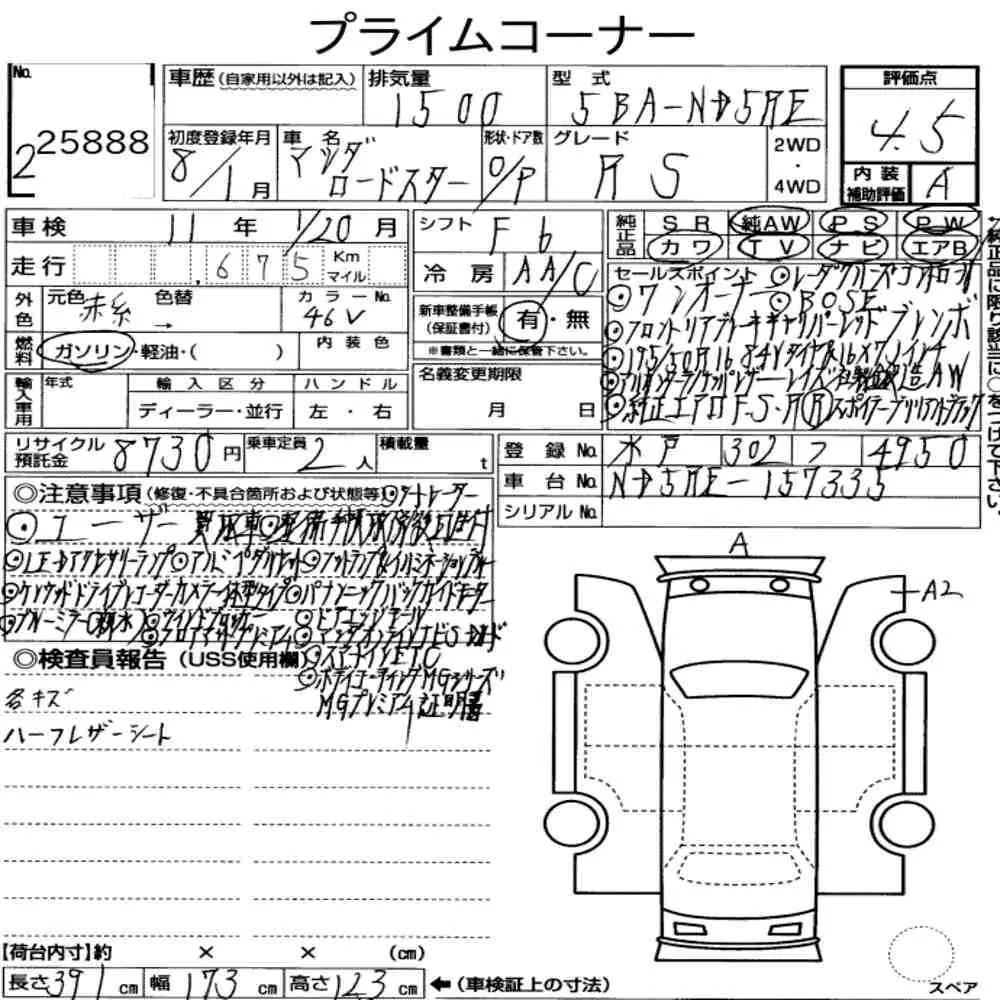 プライムコーナー
No.
2 25888
車歴 (自家用以外は記入)
排気量
1500
型式
5BA-ND5RE
評価点
4.5
初度登録年月
8/1月
車名
マツダ
ロードスター
形状・ドア数
O/P
グレード
RS
2WD
・
4WD
内装
補助評価
A
車検 11年 1/20月
シフト F6
純正品
SR 純AW PS PW
カワ TV ナビ エアB
走行 675 Km
マイル
冷房 AA/C
セールスポイント ◎レーダクルーズコントロール
◎ワンオーナー ◎BOSE
外色
元色 赤系
色替 →
カラーNo.
46V
新車整備手帳
(保証書付)
有・無
※書類と一緒に保管下さい。
◎フロントリアブレーキキャリパーレッド ブレンボ
燃料
ガソリン・軽油・( )
内装色
◎195/50R16 84Vタイヤ&16×7Jインチ
輸入車用
年式
輸入区分
ハンドル
ディーラー・並行
左・右
名義変更期限
月 日
レイズ 鍛造AW
◎純正エアロF・S・R Rスポイラーブリリアントブラック
リサイクル
預託金
8730円
乗車定員
2人
積載量
t
登録No. 水戸 302 フ 4950
車台No. ND5RE-157335
シリアルNo.
◎注意事項 (修復・不具合箇所および状態等) ◎シートヒーター
◎ユーザー買取車 ◎整備手帳
◎LEDアクセサリーランプ ◎アルミペダルセット ◎フットランプ&イルミネーションブルー
◎ケンウッドドライブレコーダーカメラ一体型タイプ ◎パナソニックバックガイドモニター
◎ブルーミラー(親水)
◎フロアマットプレミアム
◎ドアエッジモール
◎検査員報告 (USS使用欄)
ETC
◎ボディコーティングMGシリーズ
MGプレミアム証明書
各キズ
ハーフレザーシート
A
A2
【荷台内寸】約 × × (cm)
長さ391cm 幅173cm 高さ123cm ←(車検証上の寸法)
スペア